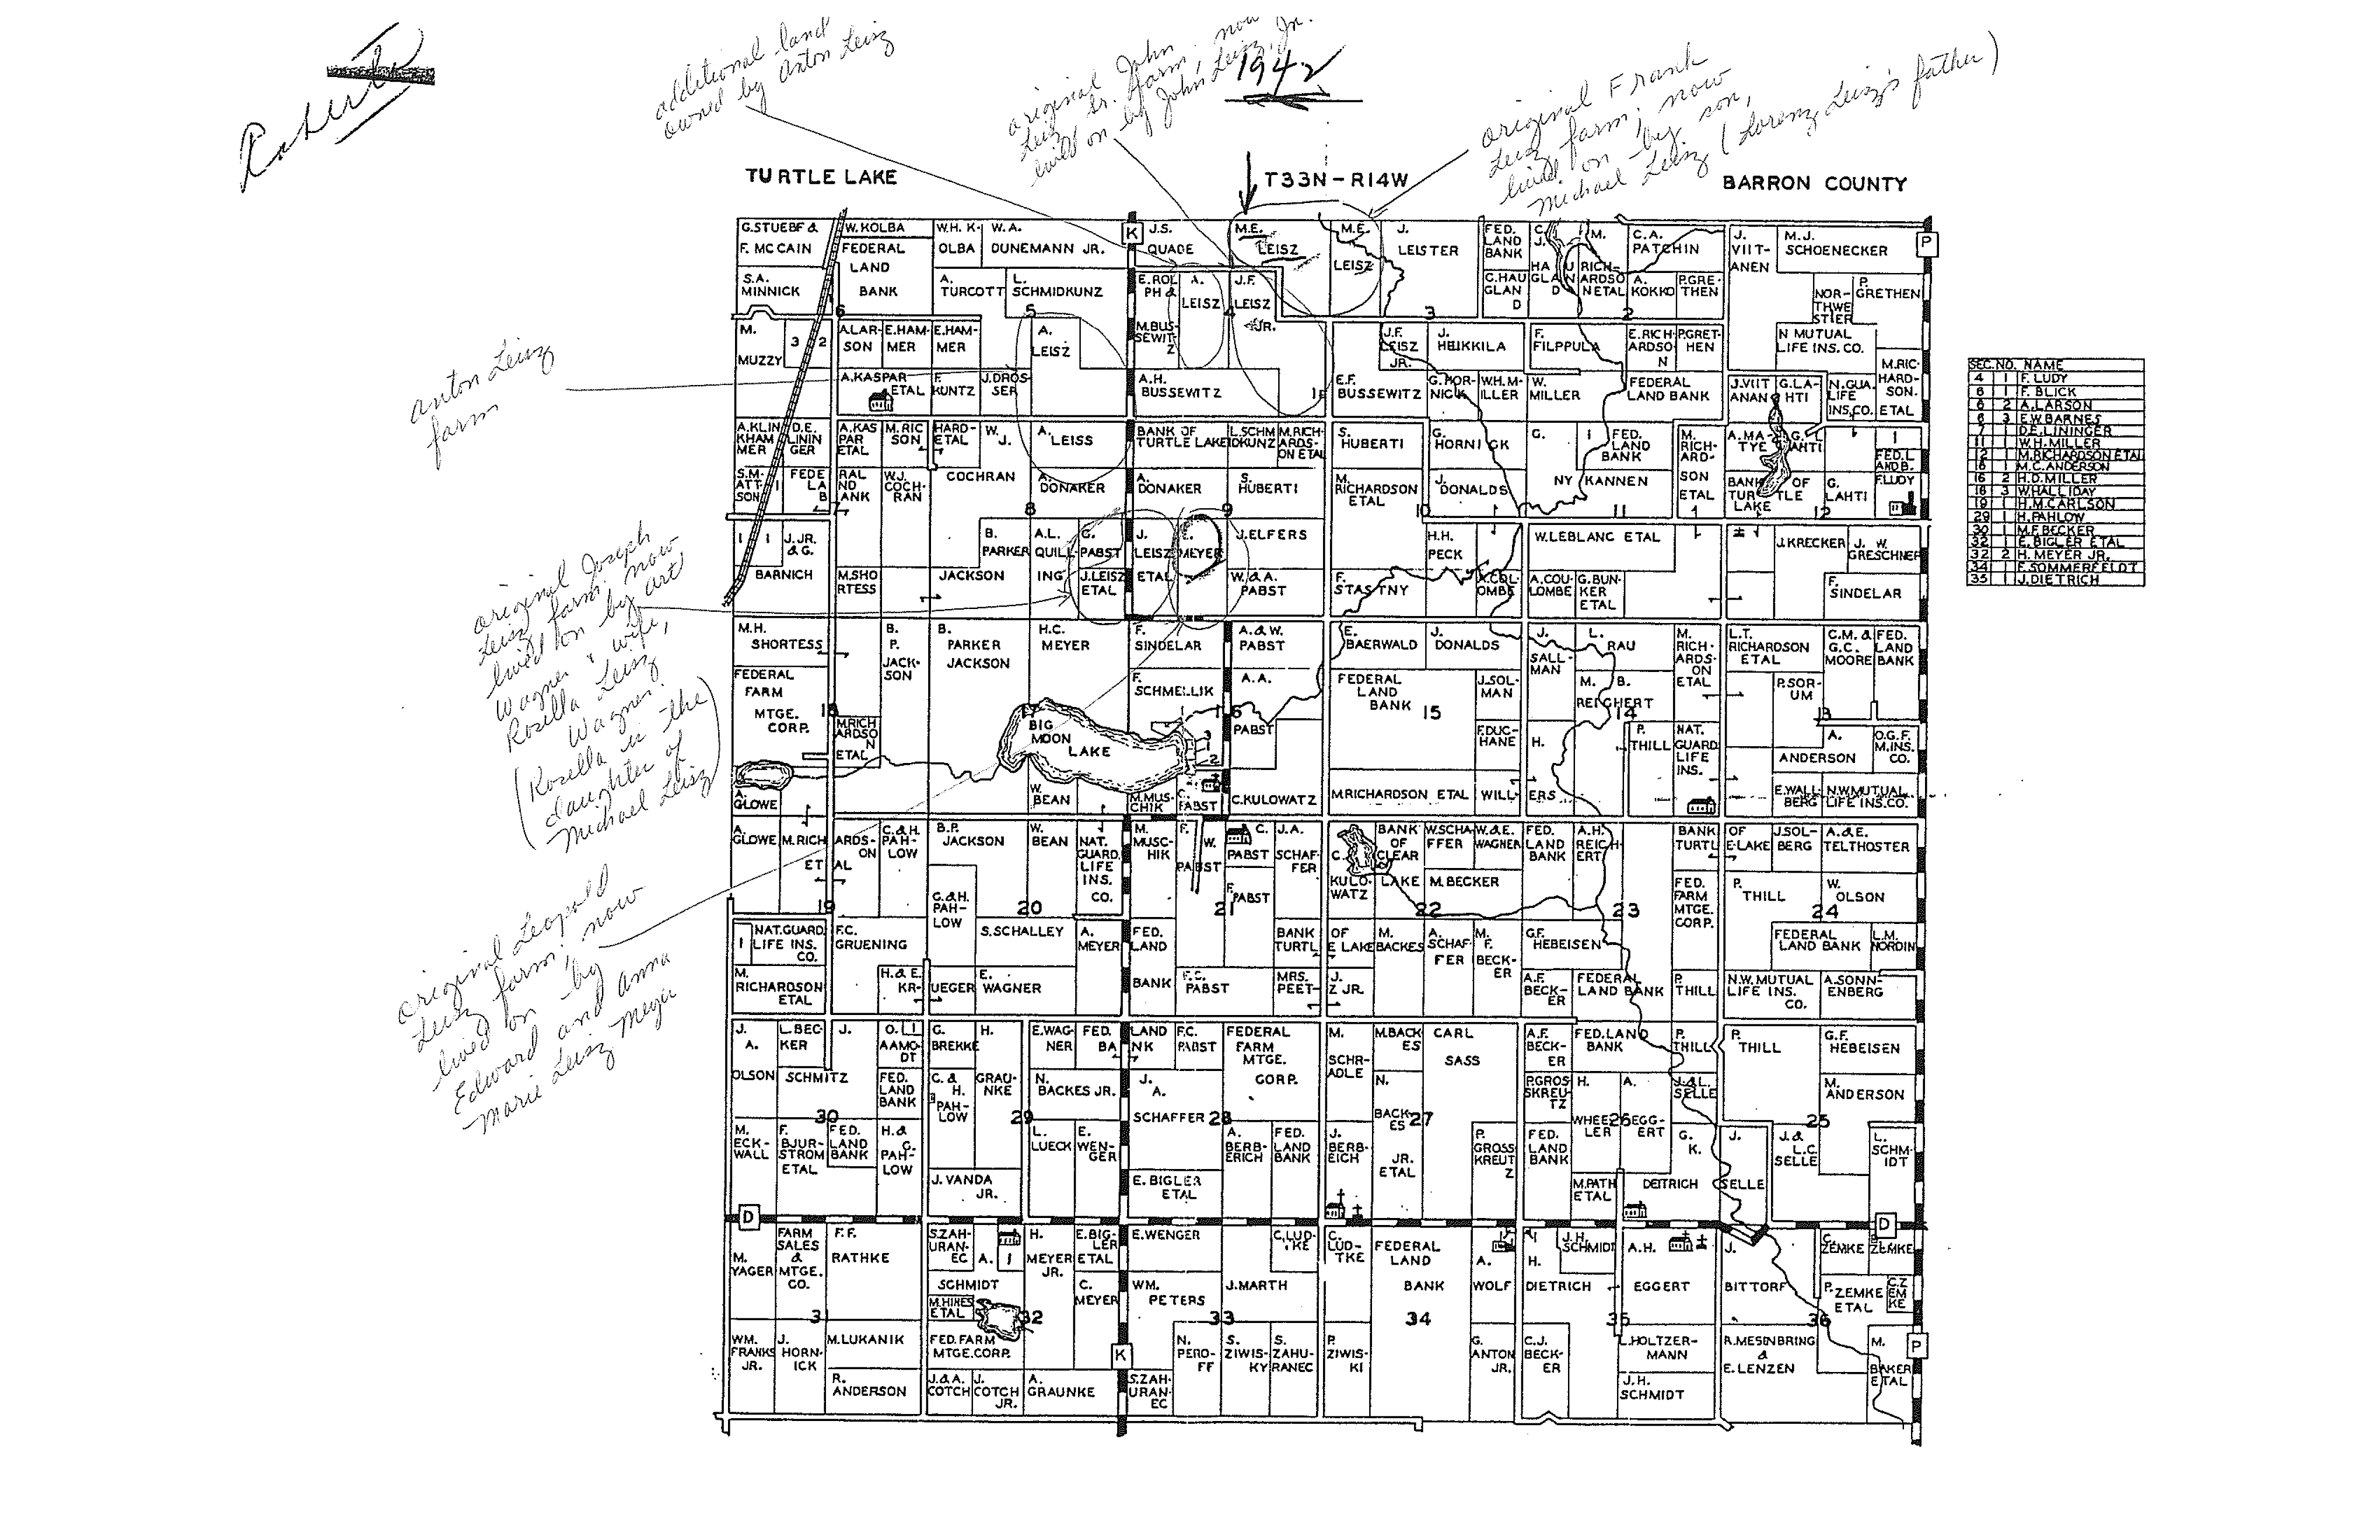 Roberta
additional land
owned by Anton Leisz
original John
Leisz Sr. farm, now
lived on by John Leisz, Jr.
1942
original Frank
Leisz farm; now
lived on by son,
Michael Leisz (Lorenz Leisz's father)
TURTLE LAKE
T33N-R14W
BARRON COUNTY
anton Leisz
farm
original Joseph
Leisz farm now
lived on by art
Wagner & wife,
Rosella Leisz
Wagner.
(Rosella is the
daughter of
Michael Leisz)
original Leopold
Leisz farm; now
lived on by
Edward and anna
Marie Leisz Meyer
SEC. NO. NAME
4 1 F. LUDY
6 1 F. BLICK
6 2 A. LARSON
6 3 E.W. BARNES
7 1 D.E. LININGER
11 1 W.H. MILLER
12 1 M. RICHARDSON ETAL
16 1 M.C. ANDERSON
16 2 H.D. MILLER
16 3 W. HALLIDAY
19 1 H.M. CARLSON
29 1 H. PAHLOW
30 1 M.F. BECKER
32 1 E. BIGLER ETAL
32 2 H. MEYER JR.
34 1 F. SOMMERFELDT
35 1 J. DIETRICH
G. STUEBF & F. MC CAIN
W. KOLBA
W.H. KOLBA
W.A. DUNEMANN JR.
K
J.S. QUADE
M.E. LEISZ
M.E. LEISZ
J. LEISTER
FED. LAND BANK
C.A. PATCHIN
J. VIITANEN
M.J. SCHOENECKER
P
FEDERAL LAND BANK
S.A. MINNICK
A. TURCOTT
L. SCHMIDKUNZ
E. ROLPH &
M. BUSSEWITZ
A. LEISZ
J.F. LEISZ JR.
C. HAUGLAND
A. KOKKO
P. GRETHEN
P. GRETHEN
6 5 4 3 2
M. MUZZY
3 2
A. LARSON
E. HAMMER
E. HAMMER
A. LEISZ
J.F. LEISZ JR.
J. HEIKKILA
F. FILPPULA
E. RICHARDSON
P. GRETHEN
NORTHWESTIERN MUTUAL LIFE INS. CO.
M. RICHARDSON ETAL
A. KASPAR ETAL
F. KUNTZ
J. DROSSER
A.H. BUSSEWITZ
E.F. BUSSEWITZ
G. HORNICK
W.H. MILLER
W. MILLER
FEDERAL LAND BANK
J. VIITANAN
G. LAHTI
N. GUA. LIFE INS. CO.
A. KLINKHAMMER
D.E. LININGER
A. KASPAR ETAL
M. RICSON
HARDETAL
W.J. COCHRAN
A. LEISS
BANK OF TURTLE LAKE
L. SCHMIDKUNZ
M. RICHARDSON ETAL
S. HUBERTI
G. HORNICK
G. NYKANNEN
FED. LAND BANK
M. RICHARDSON ETAL
A. MATYE
G. LAHTI
FED. L. AND B.
F. LUDY
S. MATTSON
FEDERAL LAND BANK
W.J. COCHRAN
A. DONAKER
A. DONAKER
S. HUBERTI
M. RICHARDSON ETAL
J. DONALDS
BANK OF TURTLE LAKE
G. LAHTI
7 8 9 10 11 12
J. JR. & G. BARNICH
M. SHORTESS
B. PARKER JACKSON
A.L. QUILLING
G. PABST
J. LEISZ ETAL
J. LEISZ ETAL
E. MEYER
J. ELFERS
W. & A. PABST
F. STASTNY
H.H. PECK
A. COLOMBE
W. LEBLANC ETAL
A. COULOMBE
G. BUNKER ETAL
J. KRECKER
J. W. GRESCHNER
F. SINDELAR
M.H. SHORTESS
B.P. JACKSON
B. PARKER JACKSON
H.C. MEYER
F. SINDELAR
A. & W. PABST
E. BAERWALD
J. DONALDS
J. SALLMAN
L. RAU
M. RICHARDSON ETAL
L.T. RICHARDSON ETAL
C.M. & G.C. MOORE
FED. LAND BANK
FEDERAL FARM MTGE. CORP.
F. SCHMELLIK
A.A. PABST
FEDERAL LAND BANK
J. SOLMAN
M. B. REICHERT
P. SORUM
18 17 16 15 14 13
M. RICHARDSON ETAL
BIG MOON LAKE
3
1
2
F. DUCHANE
H. WILLERS
P. THILL
NAT. GUARD. LIFE INS.
A. ANDERSON
O.G.F. M. INS. CO.
A. GLOWE
W. BEAN
M. MUSCHIK
C. PABST
C. KULOWATZ
M. RICHARDSON ETAL
E. WALLBERG
N.W. MUTUAL LIFE INS. CO.
A. GLOWE
M. RICHARDSON ETAL
C. & H. PAHLOW
B.P. JACKSON
W. BEAN
NAT. GUARD. LIFE INS. CO.
M. MUSCHIK
F. W. PABST
C. PABST
J.A. SCHAFFER
C. KULOWATZ
BANK OF CLEAR LAKE
W. SCHAFFER
W. & E. WAGNER
FED. LAND BANK
A.H. REICHERT
BANK OF TURTLE LAKE
J. SOLBERG
A. & E. TELTHOSTER
C. & H. PAHLOW
F. PABST
M. BECKER
FED. FARM MTGE. CORP.
P. THILL
W. OLSON
19 20 21 22 23 24
1
NAT. GUARD. LIFE INS. CO.
F.C. GRUENING
S. SCHALLEY
A. MEYER
FED. LAND BANK
BANK OF TURTLE LAKE
M. BACKES
A. SCHAFFER
M.F. BECKER
G.F. HEBEISEN
FEDERAL LAND BANK
L.M. NORDIN
M. RICHARDSON ETAL
H. & E. KRUEGER
E. WAGNER
F.C. PABST
MRS. PEETZ
J. JR.
A.F. BECKER
FEDERAL LAND BANK
P. THILL
N.W. MUTUAL LIFE INS. CO.
A. SONNENBERG
J.A. OLSON
L. BECKER
J. SCHMITZ
O. AAMODT
G. BREKKE
H. GRAUNKE
E. WAGNER
FED. LAND BANK
F.C. PABST
FEDERAL FARM MTGE. CORP.
M. SCHRADLE
M. BACKES
CARL SASS
A.F. BECKER
FED. LAND BANK
P. THILL
P. THILL
G.F. HEBEISEN
FED. LAND BANK
C. & H. PAHLOW
N. BACKES JR.
J.A. SCHAFFER
N. BACKES JR. ETAL
P. GROSSKREUTZ
H. WHEELER
A. EGGERT
J. & L. SELLE
M. ANDERSON
30 29 28 27 26 25
M. ECKWALL
F. BJURSTROM ETAL
FED. LAND BANK
H. & G. PAHLOW
L. LUECK
E. WENGER
A. BERBERICH
FED. LAND BANK
J. BERBEICH
P. GROSSKREUTZ
FED. LAND BANK
G.K. DEITRICH
J. SELLE
J. & L.C. SELLE
L. SCHMIDT
J. VANDA JR.
E. BIGLER ETAL
M. PATH ETAL
D
D
M. YAGER
FARM SALES & MTGE. CO.
F.F. RATHKE
S. ZAHURANEC
A. SCHMIDT
1
H. MEYER JR.
E. BIGLER ETAL
E. WENGER
C. LUDTKE
C. LUDTKE
FEDERAL LAND BANK
A. WOLF
H. DIETRICH
J.H. SCHMIDT
A.H. EGGERT
J. BITTORF
C. ZEMKE
ZEMKE
M. HINES ETAL
C. MEYER
WM. PETERS
J. MARTH
P. ZEMKE ETAL
C. ZEMKE
31 32 33 34 35 36
WM. FRANKS JR.
J. HORNICK
M. LUKANIK
FED. FARM MTGE. CORP.
K
N. PEROFF
S. ZIWISKY
S. ZAHURANEC
P. ZIWISKI
G. ANTON JR.
C.J. BECKER
L. HOLTZERMANN
R. MESENBRING & E. LENZEN
M. BAKER ETAL
P
R. ANDERSON
J. & A. COTCH
J. COTCH JR.
A. GRAUNKE
S. ZAHURANEC
J.H. SCHMIDT